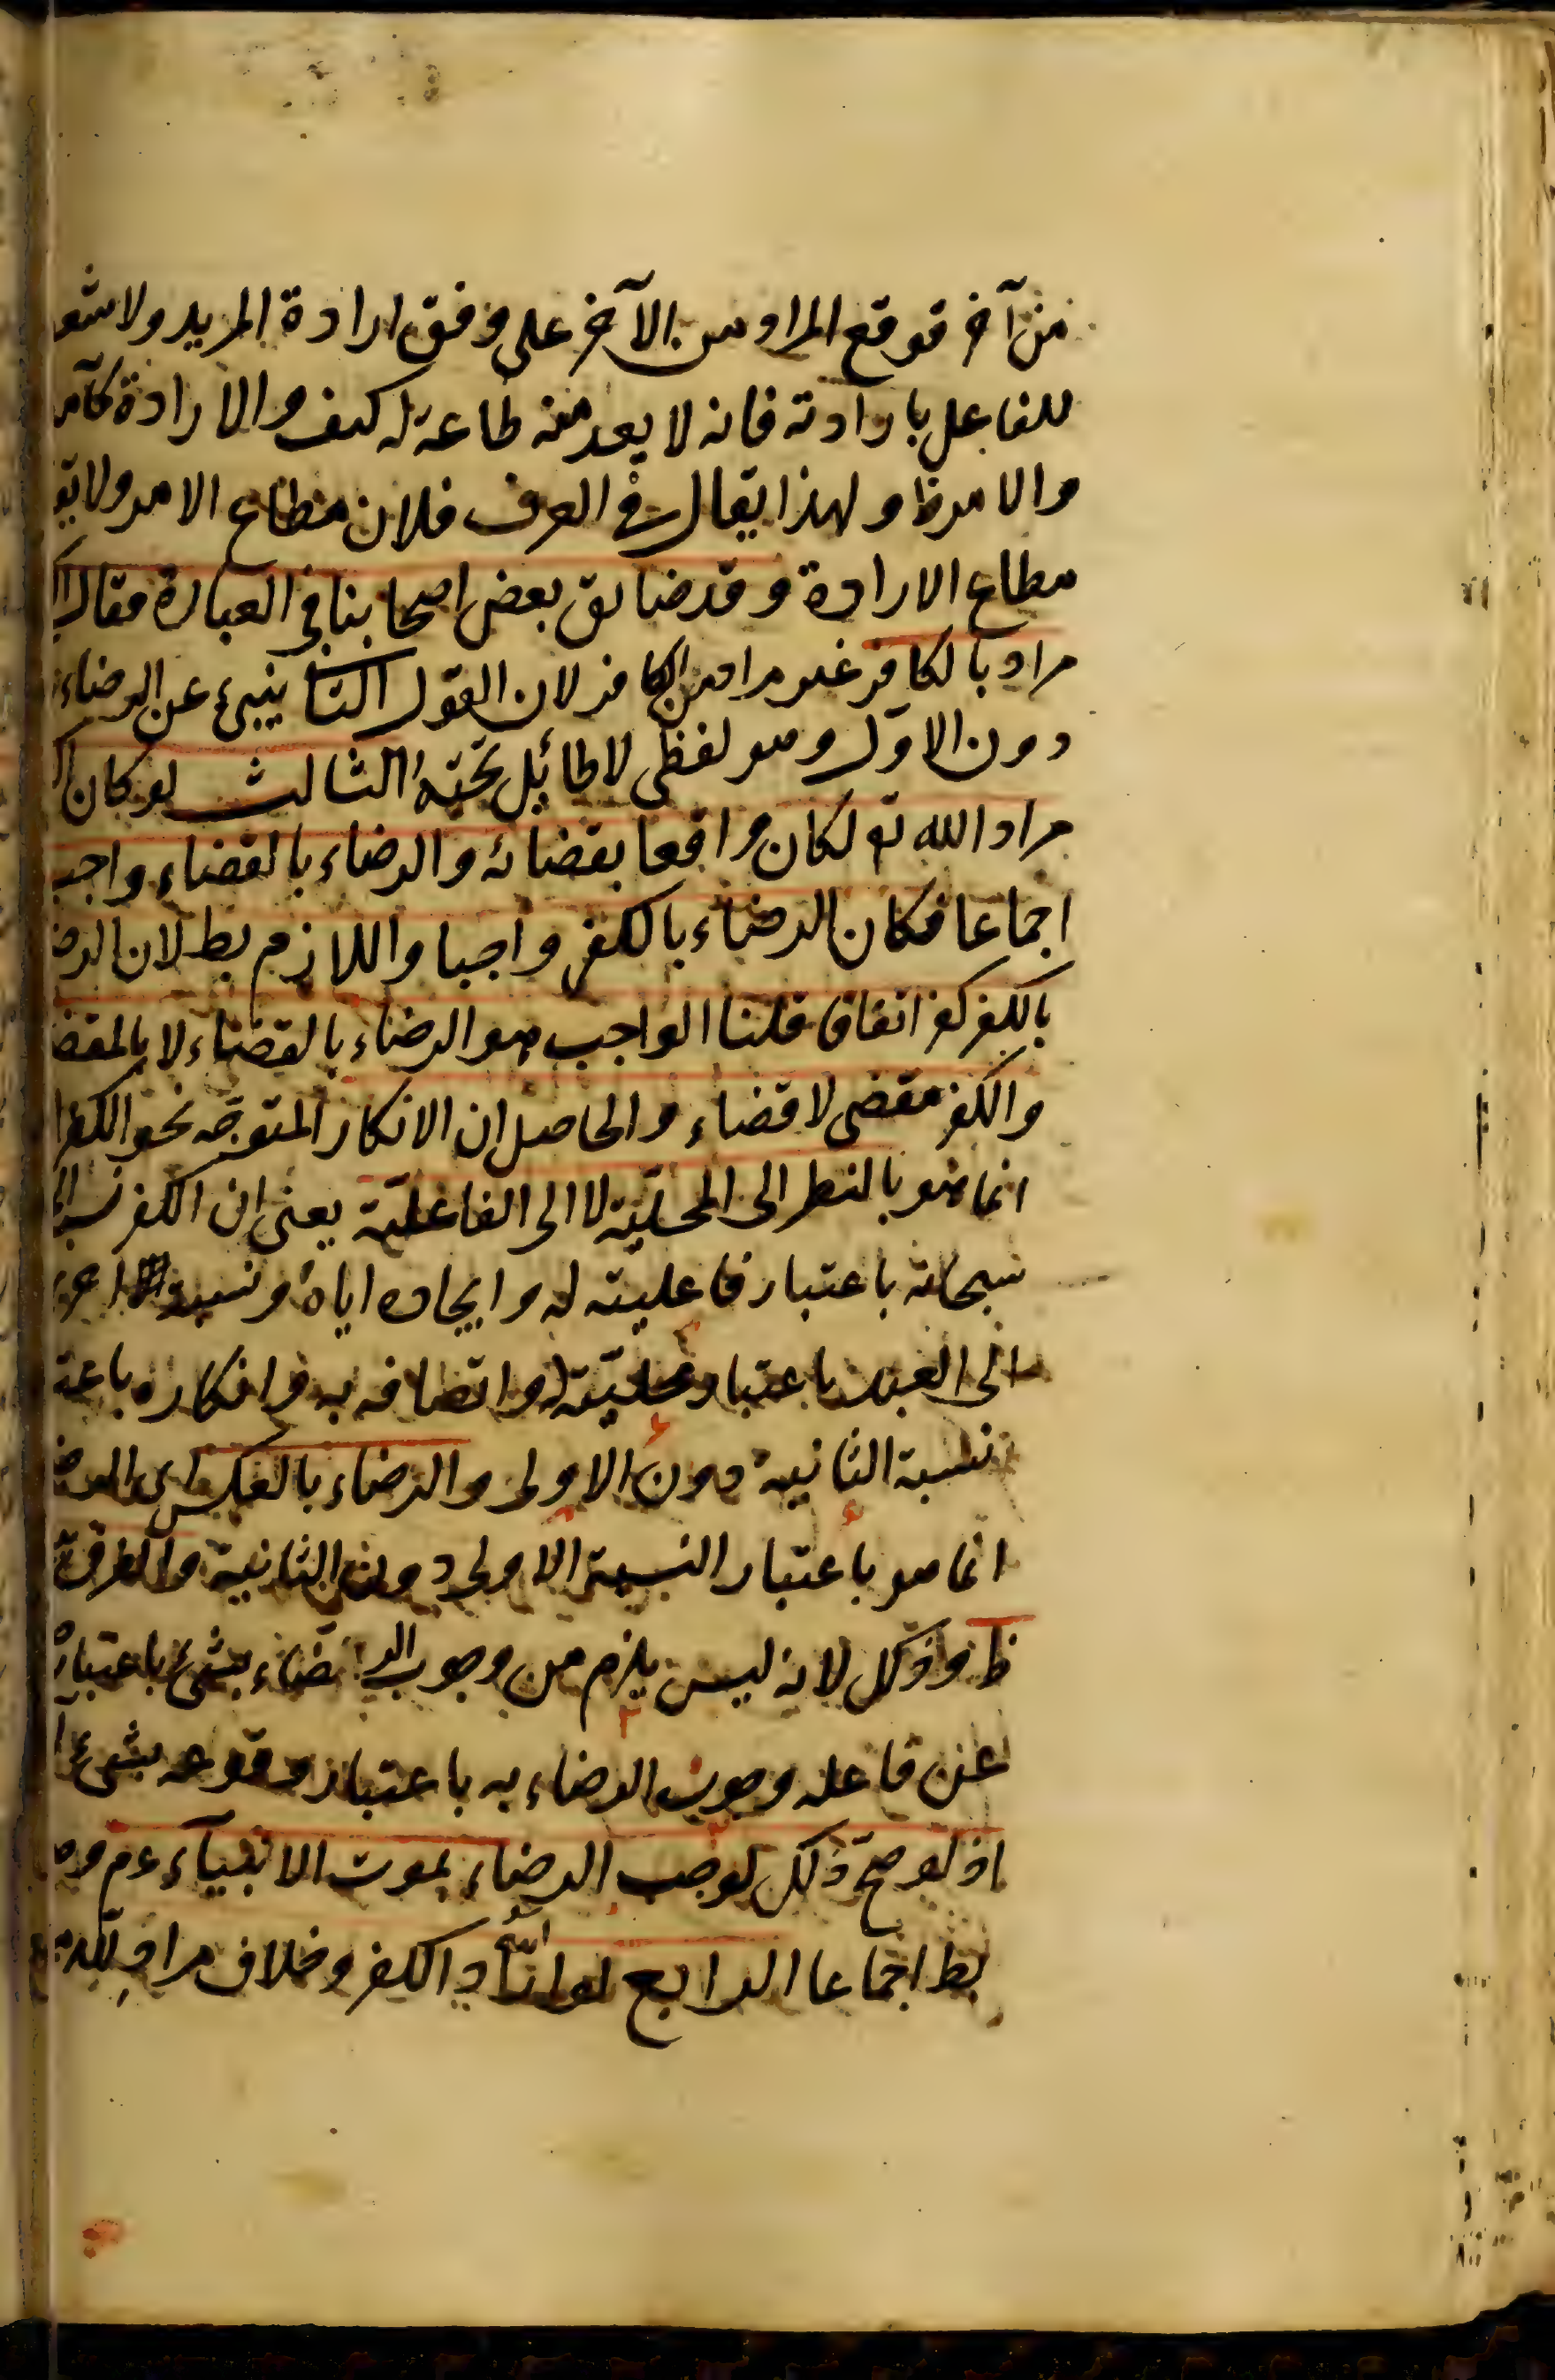 من آخر فوقع المراد من الآخر على وفق ارادة المريد ولا شعو
للفاعل بارادته فانه لا يعد منه طاعة له كيف والارادة كامنـ
والامر ظ ولهذا يقال في العرف فلان مطاع الامر ولا يق
مطاع الارادة وقد ضايق بعض اصحابنا في العبارة فقال
مراد بالكافر غير مراد من الكافر لان القول الثا ينبئ عن الرضاء
دون الاول وهو لفظي لا طائل تحته الثالث لو كان
مراد الله تع لكان واقعا بقضائه والرضاء بالقضاء واجب
اجماعا فكان الرضاء بالكفر واجبا واللازم بط لان الرضـ
بالكفر كفر اتفاقا قلنا الواجب هو الرضاء بالقضاء لا بالمقضـ
والكفر مقضى لا قضاء والحاصل ان الانكار المتوجه نحو الكفر
انما هو بالنظر الى المحلية لا الى الفاعلية يعنى ان الكفر نسبة
سبحانه باعتبار فاعليته له وايجاده اياه ونسبة اخرى
الى العبد باعتبار محليته له واتصافه به وانكاره باعتـ
نسبة الثانية دون الاولى والرضاء بالعكس اى الرضـ
انما هو باعتبار النسبة الاولى دون الثانية والفرق
ظ وذلك لانه ليس يلزم من وجوب الرضاء بشئ باعتبار
عن فاعله وجوب الرضاء به باعتبار وقوعه بشئ
اذ لو صح ذلك لوجب الرضاء بموت الانبياء عم وهـ
بط اجماعا الرابع لو اراد الله الكفر وخلاف مراد الله